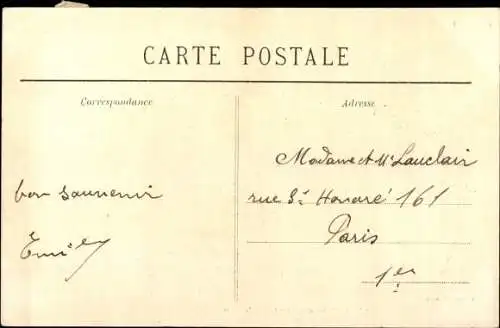 CARTE POSTALE
Correspondance
Adresse
bon souvenir
Emily
Madame et Mr Lauclair
rue St Honoré 161
Paris
1er